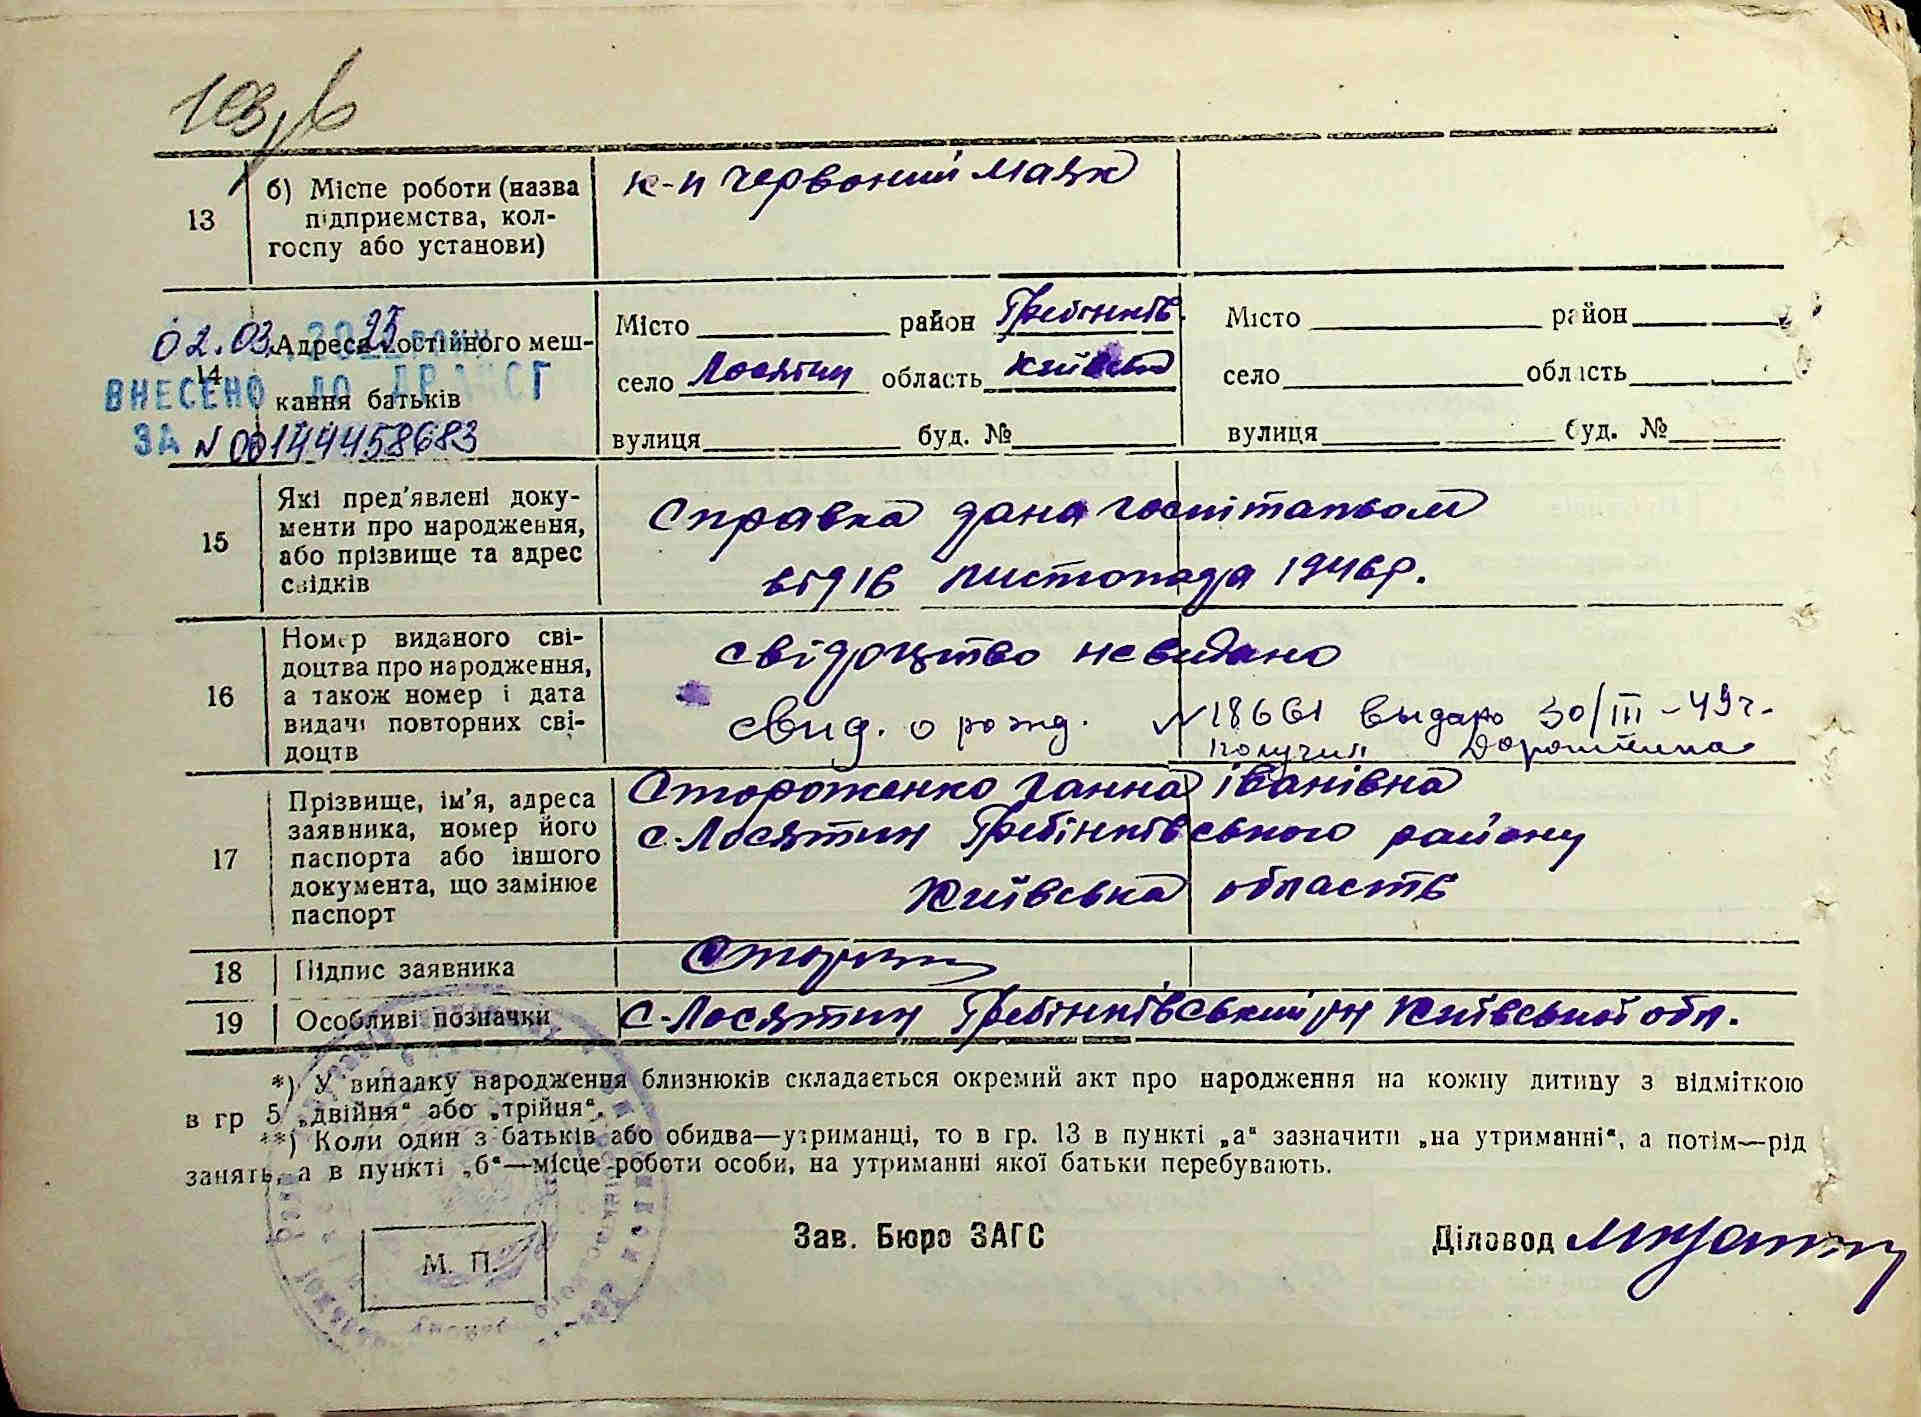 103
13
б) Місце роботи (назва
підприємства, кол-
госпу або установи)
к-п Червоний Маяк
02.03. 25
ВНЕСЕНО ДО ДРАЦСГ
ЗА N 00144458683
14
Адреса постійного меш-
кання батьків
Місто район Гребінків.
село Лосятин область Київська
вулиця буд. №
Місто район
село область
вулиця буд. №
15
Які пред'явлені доку-
менти про народження,
або прізвище та адрес
свідків
Справка дана госпітальом
від 16 листопада 1946р.
16
Номер виданого сві-
доцтва про народження,
а також номер і дата
видачі повторних сві-
доцтв
свідоцтво невидано
свид. о рожд. N 18661 выдано 30/III-49г.
получил
17
Прізвище, ім'я, адреса
заявника, номер його
паспорта або іншого
документа, що замінює
паспорт
Стороженко Ганна Іванівна
с. Лосятин Гребінківського району
Київська область
18
Підпис заявника
19
Особливі позначки
с. Лосятин Гребінківський рн Київської обл.
*) У випадку народження близнюків складається окремий акт про народження на кожну дитину з відміткою
в гр 5 „двійня“ або „трійня“.
**) Коли один з батьків або обидва—утриманці, то в гр. 13 в пункті „а“ зазначити „на утриманні“, а потім—рід
занять, а в пункті „б“—місце роботи особи, на утриманні якої батьки перебувають.
М. П.
Зав. Бюро ЗАГС
Діловод